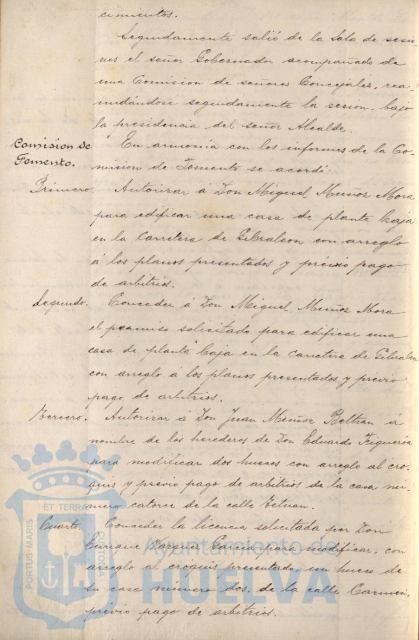 cimientos.
Seguidamente salió de la Sala de sesio
nes el señor Gobernador acompañado de
una Comision de señores Concejales, rea
nudándose seguidamente la sesion, bajo
la presidencia del señor Alcalde.
Comisión de
Fomento.
En armonia con los informes de la Co-
mision de Fomento se acordó:
Primero. Autorizar á Don Miguel Muñoz Mora
para edificar una casa de planta baja
en la Carretera de Gibraleon con arreglo
á los planos presentados y previo pago
de arbitrios.
Segundo. Conceder á Don Miguel Muñoz Mora
el permiso solicitado para edificar una
casa de planta baja en la carretera de Gibraleon
con arreglo á los planos presentados y previo
pago de arbitrios.
Tercero. Autorizar á Don Juan Muñoz Beltran á
nombre de los herederos de Don Eduardo Figueroa
para modificar dos huecos con arreglo al cro
quis y previo pago de arbitrios de la casa nú-
mero catorce de la calle Tetuan.
Cuarto. Conceder la licencia solicitada por Don
Enrique García para modificar, con
arreglo al croquis presentado, un hueco de
su casa número dos, de la calle Carmen,
previo pago de arbitrios.
PORTUS MARIS
ET TERRAE
CUSTODIA
Ayuntamiento de
HUELVA